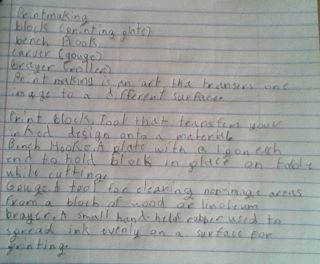 Printmaking
block (printing plate)
bench Hook
carver (gouge)
brayer (roller)
Print making is an art tha transers one
image to a different surface.
Print block. Tool that transfers your
inked design onto a material
Bench Hooke. A plate with a lip on each
end to hold block in place on table
while cutting.
Gouge. A tool for clearing nonimage areas
from a block of wood or linoleum
brayer. A small hand-held rubber used to
spread ink evenly on a surface for
printing.